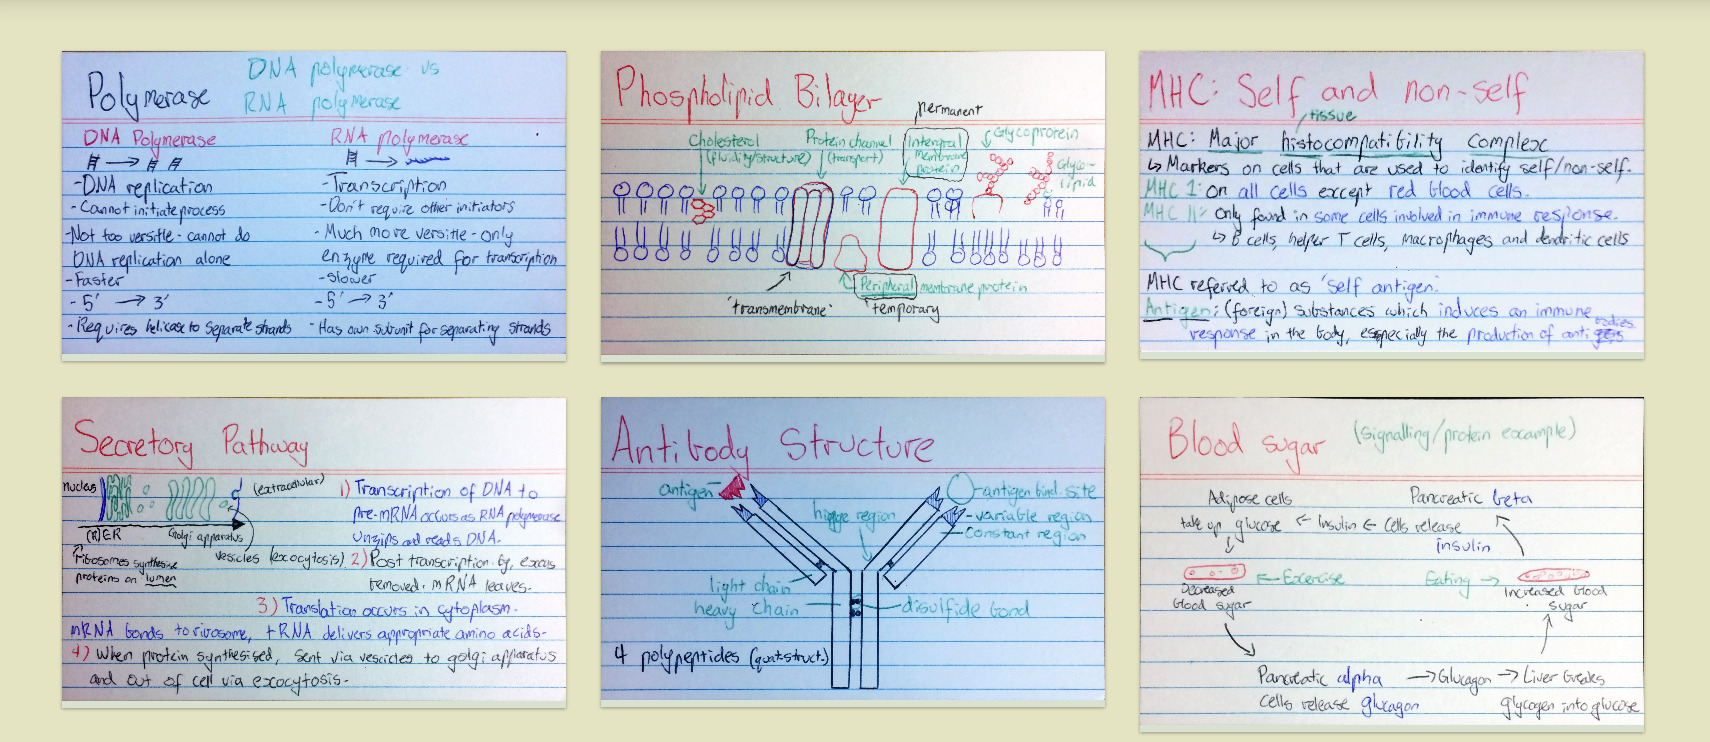 Polymerase
DNA polymerase vs
RNA polymerase
DNA Polymerase
-DNA replication
-Cannot initiate process
-Not too versitle - cannot do
DNA replication alone
-Faster
-5' → 3'
-Requires helicase to separate strands
RNA polymerase
-Transcription
-Don't require other initiators
-Much more versitle - only
enzyme required for transcription
-Slower
-5' → 3'
-Has own subunit for separating strands
Phospholipid Bilayer
permanent
Cholesterol
(fluidity/structure)
Protein channel
(transport)
Intergral
membrane
protein
Glycoprotein
Glyco-
lipid
'transmembrane'
Peripheral membrane protein
temporary
MHC: Self and non-self
tissue
MHC: Major histocompatibility Complex
↳ Markers on cells that are used to identify self/non-self.
MHC I: on all cells except red blood cells.
MHC II: Only found in some cells involved in immune response.
↳ B cells, helper T cells, macrophages and dendritic cells
MHC referred to as 'self antigen'.
Antigen: (foreign) substances which induces an immune
response in the body, especially the production of antibodies
Secretory Pathway
nucleus
(extracellular)
(R)ER
Golgi apparatus
vesicles (exocytosis)
Ribosomes synthesise
proteins on lumen
1) Transcription of DNA to
pre-mRNA occurs as RNA polymerase
unzips and reads DNA.
2) Post transcription
removed. mRNA leaves.
3) Translation occurs in cytoplasm.
mRNA bonds to ribosome, tRNA delivers appropriate amino acids-
4) When protein synthesised, sent via vescicles to golgi apparatus
and out of cell via exocytosis.
Antibody Structure
antigen
higge region
antigen bind. site
variable region
constant region
light chain
heavy chain
disulfide bond
4 polypeptides (quat.struct.)
Blood sugar (signalling/protein example)
Adipose cells
take up glucose ← Insulin ← Cells release
insulin
Pancreatic beta
Decreased
blood sugar
← Exercise
Eating →
Increased blood
sugar
Pancreatic alpha
cells release glucagon
→ Glucagon → Liver breaks
glycogen into glucose